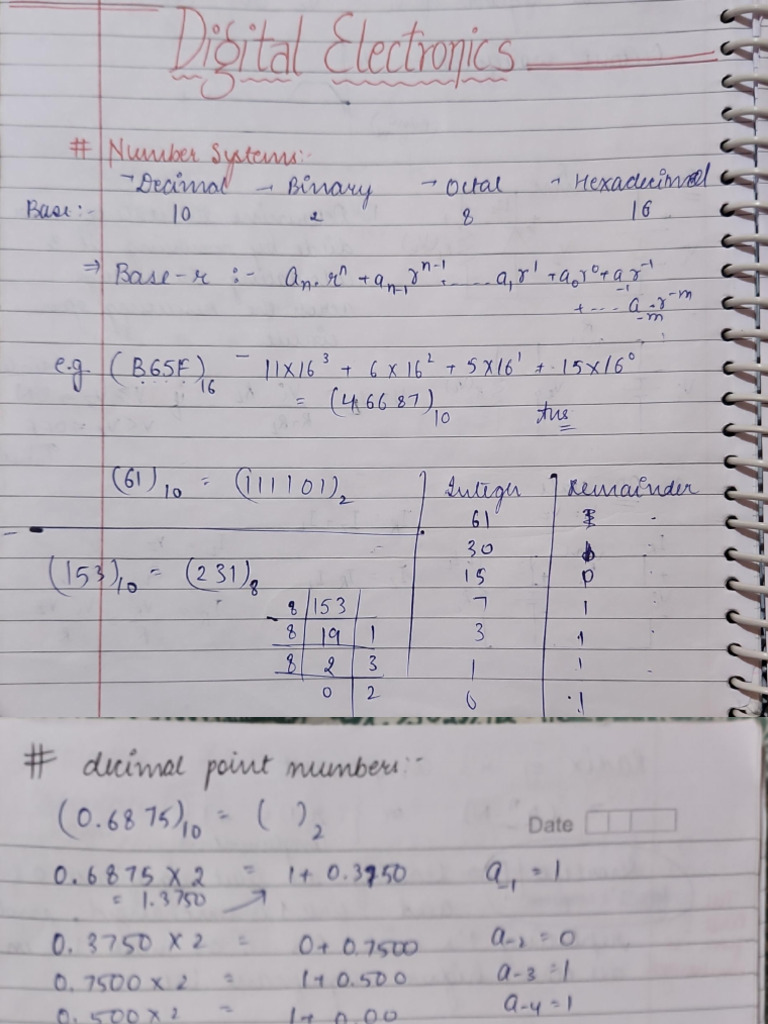 Digital Electronics
# Number Systems:-
→Decimal → Binary → Octal → Hexadecimal
Base:- 10 2 8 16
⇒ Base-r :- aₙ.rⁿ + aₙ₋₁rⁿ⁻¹ ..... a₁r¹ + a₀r⁰ + a₋₁r⁻¹
+ .... a₋ₘ.r⁻ᵐ
e.g (B65F)₁₆ - 11×16³ + 6×16² + 5×16¹ + 15×16⁰
= (46687)₁₀ Ans
(61)₁₀ = (111101)₂
Integer Remainder
61
30
15 0
7 1
3 1
1 1
0 1
(153)₁₀ = (231)₈
8 153
8 19 1
8 2 3
0 2
# decimal point numbers:-
(0.6875)₁₀ = ( )₂
Date
0.6875 × 2 = 1 + 0.3750 a₋₁ = 1
= 1.3750
0.3750 × 2 = 0 + 0.7500 a₋₂ = 0
0.7500 × 2 = 1 + 0.500 a₋₃ = 1
0.500 × 2 = 1 + 0.00 a₋₄ = 1